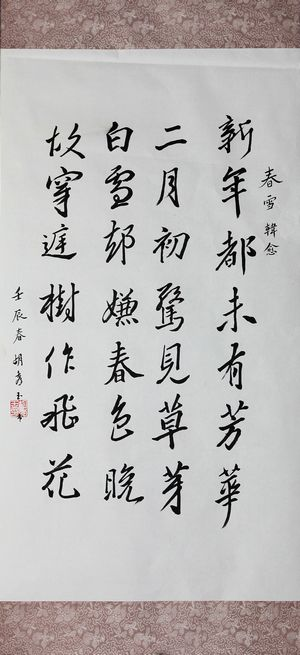 春雪 韓愈
新年都未有芳華
二月初驚見草芽
白雪却嫌春色晚
故穿庭樹作飛花
壬辰春 胡秀玉